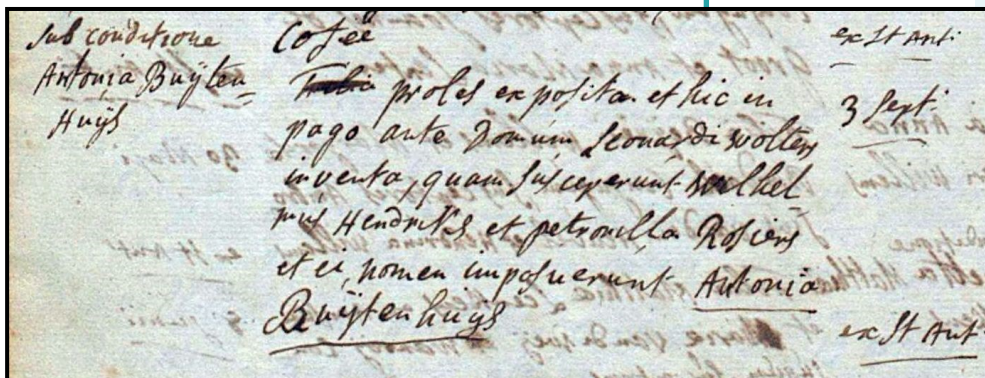 Sub conditione
Antonia Buÿten=
Huÿs
Cosee
proles exposita et hic in
pago ante Domum Leonardi Wolters
inventa, quam susceperunt Wilhel
mus Hendriks et petronilla Rosiers
et ei nomen imposuerunt Antonia
Buÿtenhuÿs
ex St Ant:
3 Sept:
ex St Ant